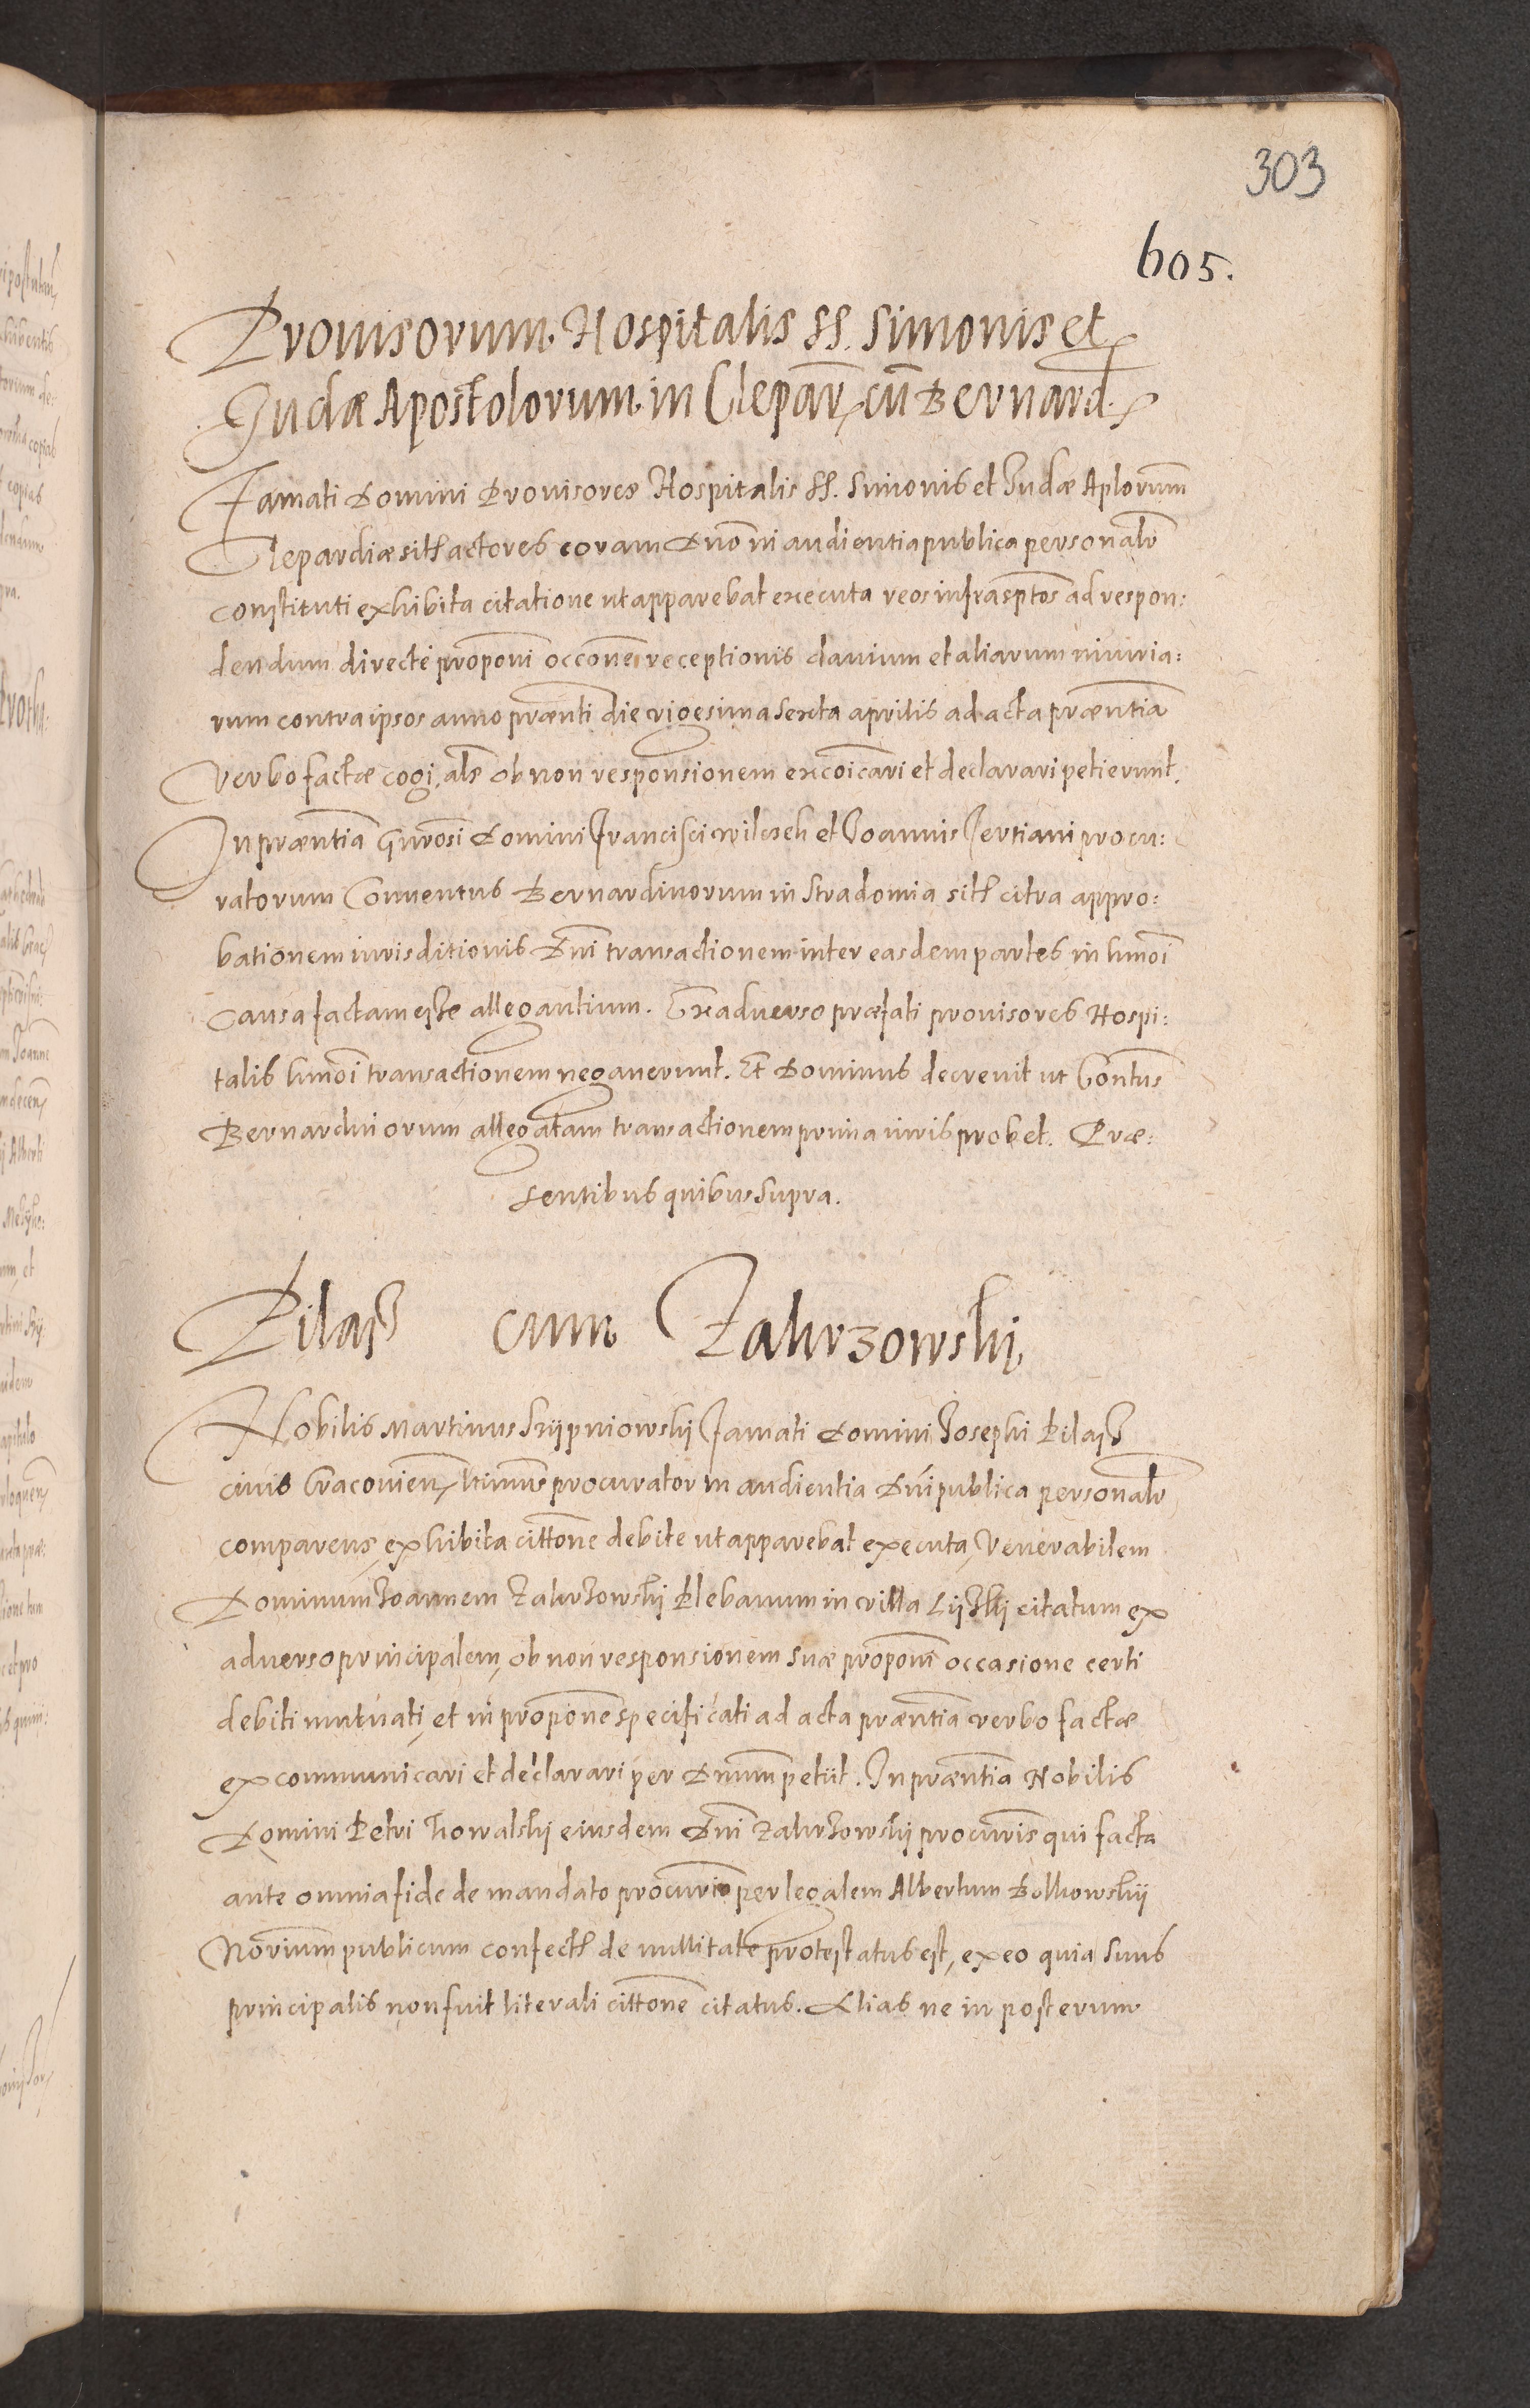 303
605.
Prouisorum Hospitalis SS. Simonis et
Judæ Apostolorum in Clepar cũ Bernard
Famati Domini Prouisores Hospitalis SS. Simonis et Judæ Aplorum
Clepardiæ sitħ actores coram Dno in audientia publica personalr
constituti exhibita citatione ut apparebat executa reos infrasptos ad respon:
dendum directe proponi occone receptionis clauium et aliarum iniuria:
rum contra ipsos anno prænti die vigesima sexta aprilis ad acta præntia
verbo factæ cogi, als ob non responsionem excoicari et declarari petierunt.
In præntia Gnrosi Domini Francisci wilczek et Joannis Tertiani procu:
ratorum Conuentus Bernardinorum in Stradomia sitħ citra appro:
bationem iurisditionis Dni transactionem inter easdem partes in hmoi
causa factam esse allegantium. Ex aduerso præfati prouisores Hospi:
talis hmoi transactionem negauerunt. Et Dominus decreuit ut Contus
Bernardinorum allegatam transactionem prima iuris probet. Præ:
sentibus quibus supra.
Pilaß cum Zakrzowski
Nobilis Martinus Krijpniowskij Famati Domini Josephi Pilaß
ciuis Cracouien ltimus procurator in audientia Dni publica personalr
comparens, exhibita cittone debite ut apparebat executa, Venerabilem
Dominum Joannem Zakrzowski Plebanum in villa citatum ex
aduerso principalem, ob non responsionem suæ proponi occasione certi
debiti mutuati, et in propone specificati ad acta præntia verbo factæ
excommunicari et declarari per Dnum petiit. In præntia Nobilis
Domini Petri Kowalskij eiusdem Dni Zakrzowskij procuris qui facta
ante omnia fide de mandato procurio per legalem Albertum Bolkowskij
Norium publicum confectħ de nullitate protestatus est, ex eo quia suus
principalis non fuit literali cittone citatus. Alias ne in posterum